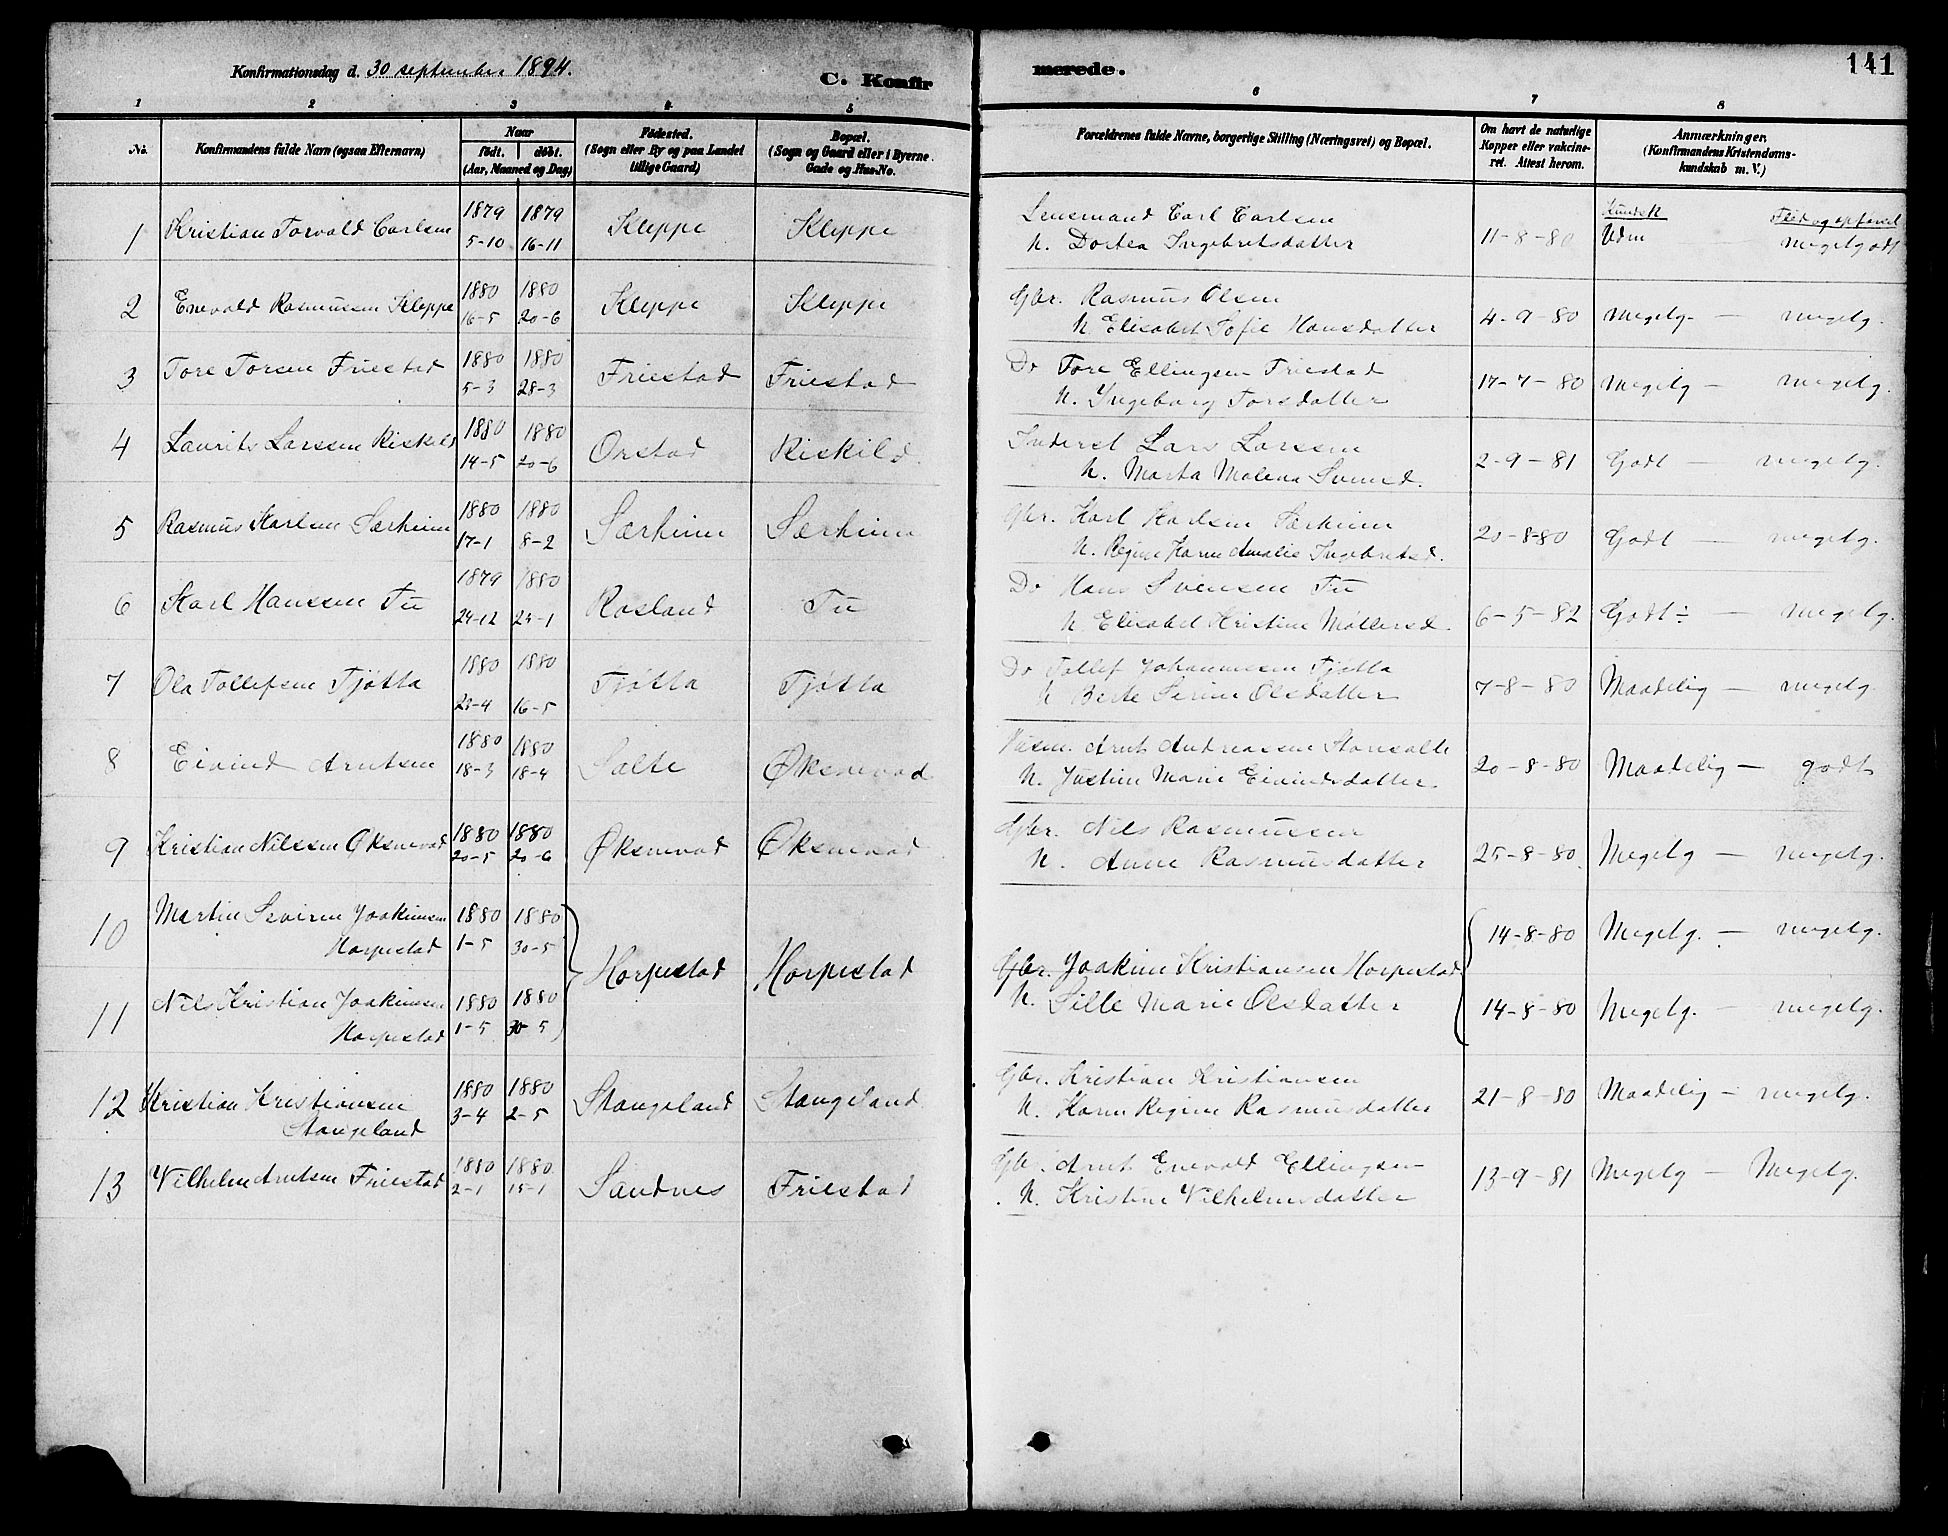 Konfirmationsdag d. 30 september 1894.
C. Konfirmerede.
141
1 2 3 4 5 6 7 8
No.
Konfirmandens fulde Navn (ogsaa Efternavn)
Naar
født. døbt.
(Aar, Maaned og Dag)
Fødested.
(Sogn eller By og paa Landet
tillige Gaard)
Bopæl.
(Sogn og Gaard eller i Byerne
Gade og Hus-No.
Forældrenes fulde Navne, borgerlige Stilling (Næringsvei) og Bopæl.
Om havt de naturlige
Kopper eller vakcine-
ret. Attest herom.
Anmærkninger.
(Konfirmandens Kristendoms-
kundskab m. V.)
Kundsk Flid og opførsel
1 Kristian Torvald Carlsen 1879 5-10 1879 16-11 Kleppe Kleppe
Lensmand Carl Carlsen
h. Dortea Ingebretsdatter 11-8-80 Udm megetgodt
2 Enevald Rasmussen Kleppe 1880 16-5 1880 20-6 Kleppe Kleppe
Gbr. Rasmus Olsen
h Elisabet Sofie Hansdatter 4-9-80 Megetg. — megetg.
3 Tore Torsen Friestad 1880 5-3 1880 28-3 Friestad Friestad
Do Tore Ellingsen Friestad
h. Ingeborg Torsdatter 17-7-80 Megetg — megetg.
4 Laurits Larssen Riskild 1880 14-5 1880 20-6 Orstad Riskild
Inderst Lars Larssen
h. Marta Malena Svensd. 2-9-81 Godt — megetg.
5 Rasmus Karlsen Særheim 1880 17-1 1880 8-2 Særheim Særheim
Gbr. Karl Karlsen Særheim
h. Regine Karne Amalie Ingebretsd. 20-8-80 Godt — megetg.
6 Karl Hanssen Tu 1879 24-12 1880 25-1 Rosland Tu
Do Hans Svensen Tu
h Elisabet Kristine Møllersd. 6-5-82 Godt ÷ — megetg.
7 Ola Tollefsen Tjøtta 1880 23-4 1880 16-5 Tjøtta Tjøtta
Do Tollef Johannessen Tjøtta
h Berte Serine Olsdatter 7-8-80 Maadelig — megetg
8 Eivind Arntsen 1880 18-3 1880 18-4 Salte Øksnevad
Arnt Andreassen
h. Justine Marie Eivindsdatter 20-8-80 Maadelig — godt
9 Kristian Nilssen Øksnevad 1880 20-5 1880 20-6 Øksnevad Øksnevad
Gbr. Nils Rasmussen
h. Anne Rasmusdatter 25-8-80 Megetg — megetg.
10 Martin Severin Joakimsen
Horpestad 1880 1-5 1880 30-5 Horpestad Horpestad
Gbr. Joakim Kristiansen Horpestad
h. Sille Marie Olsdatter 14-8-80 Megetg. — megetg.
11 Nils Kristian Joakimsen
Horpestad 1880 1-5 1880 30-5
14-8-80 Megetg. — megetg.
12 Kristian Kristiansen
Stangeland 1880 3-4 1880 2-5 Stangeland Stangeland
Gbr. Kristian Kristiansen
h. Karen Regine Rasmusdatter 21-8-80 Maadelig — megetg.
13 Vilhelm Arntsen Friestad 1880 2-1 1880 15-1 Sandnes Friestad
Gbr. Arnt Enevald Ellingsen
h. Kristine Vilhelmsdatter 13-9-81 Megetg — Megetg.